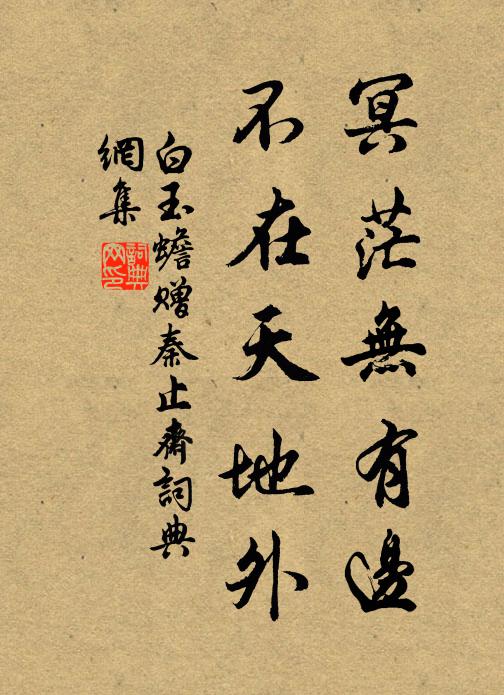 冥茫無有邊
不在天地外
白玉蟾赠秦止齋詞典
網集
詞典
网印